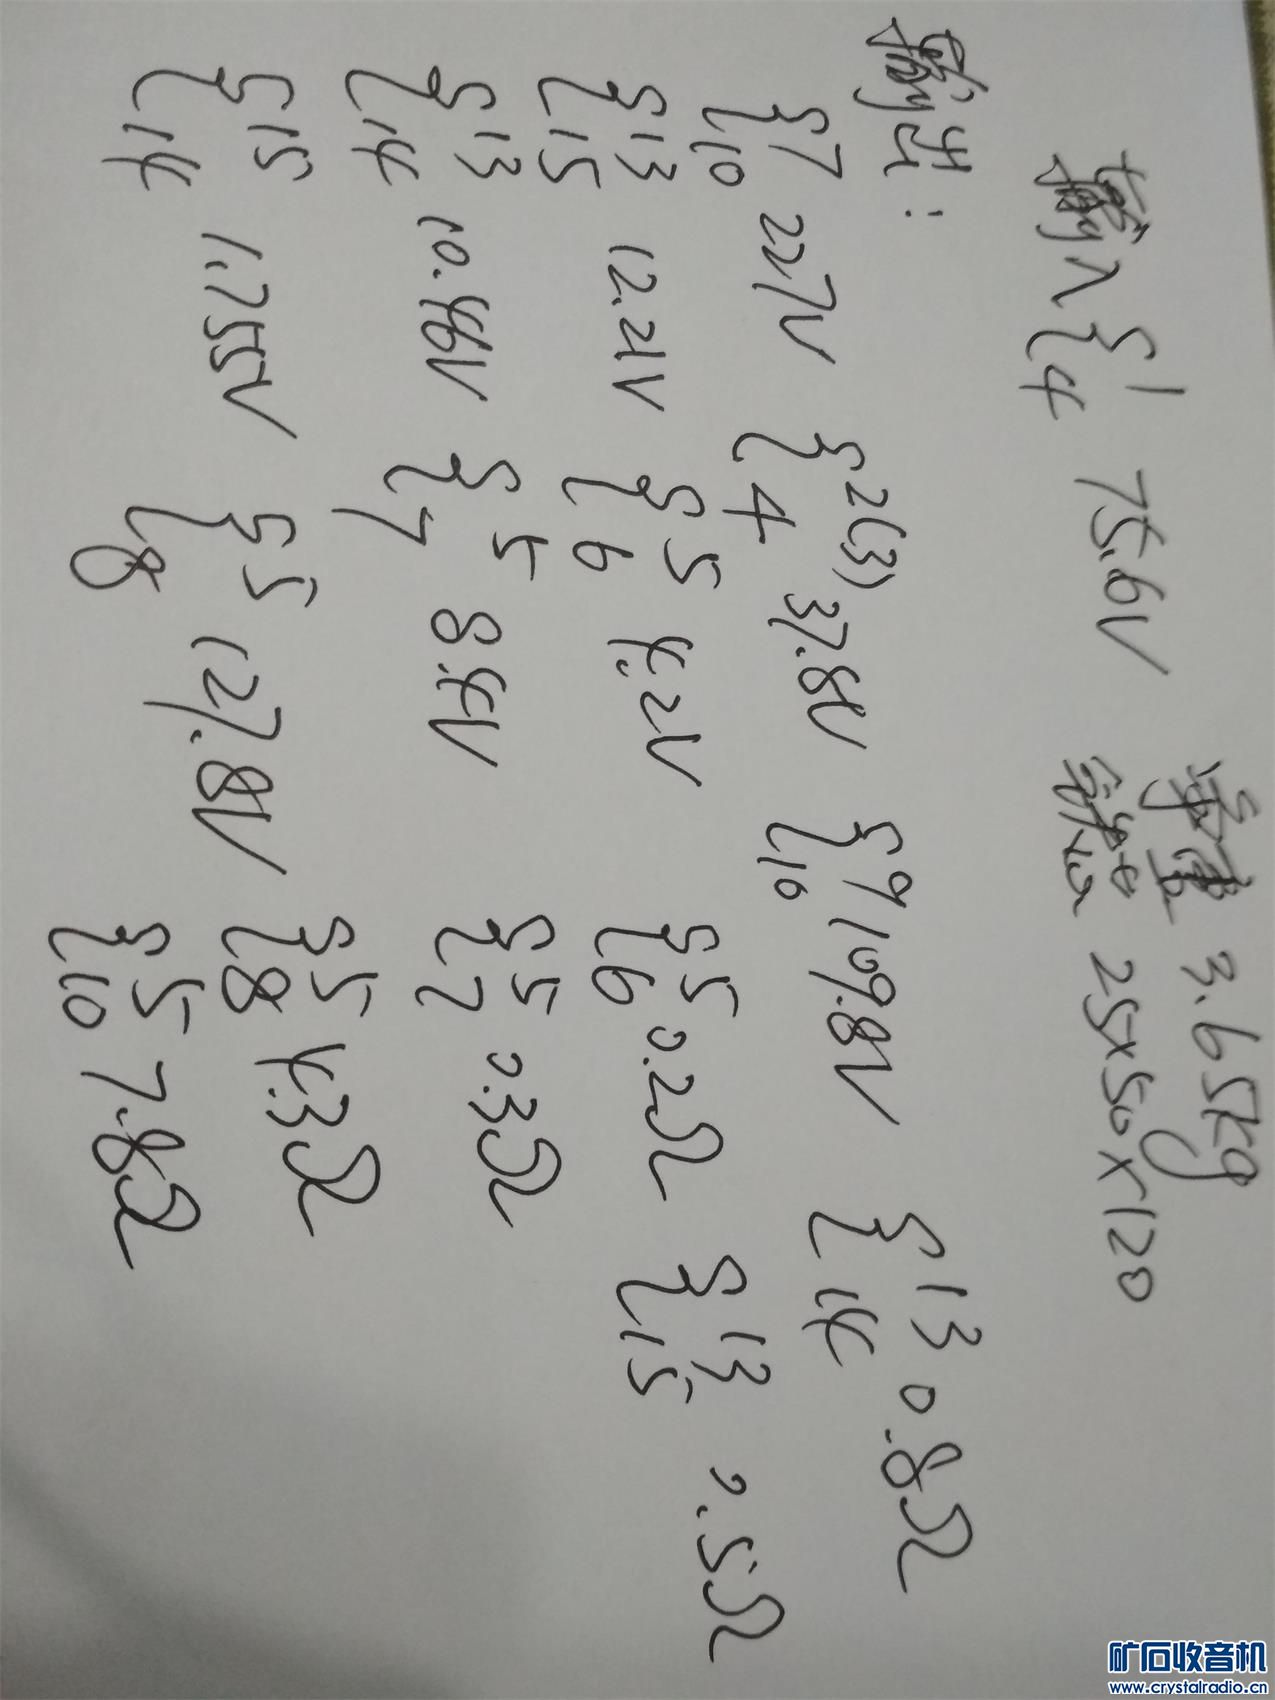 单重 3.65kg
输入 { 1 4 75.6V 铁芯 25×50×120
输出:
{ 7 10 227V { 2(3) 4 37.8V { 9 10 109.8V { 13 14 0.8Ω
{ 13 15 12.21V { 5 6 4.2V { 5 6 0.2Ω { 13 15 0.5Ω
{ 13 14 10.46V { 5 7 8.4V { 5 7 0.3Ω
{ 15 14 1.755V { 5 8 127.8V { 5 8 4.3Ω
{ 5 10 7.8Ω
矿石收音机
www.crystalradio.cn